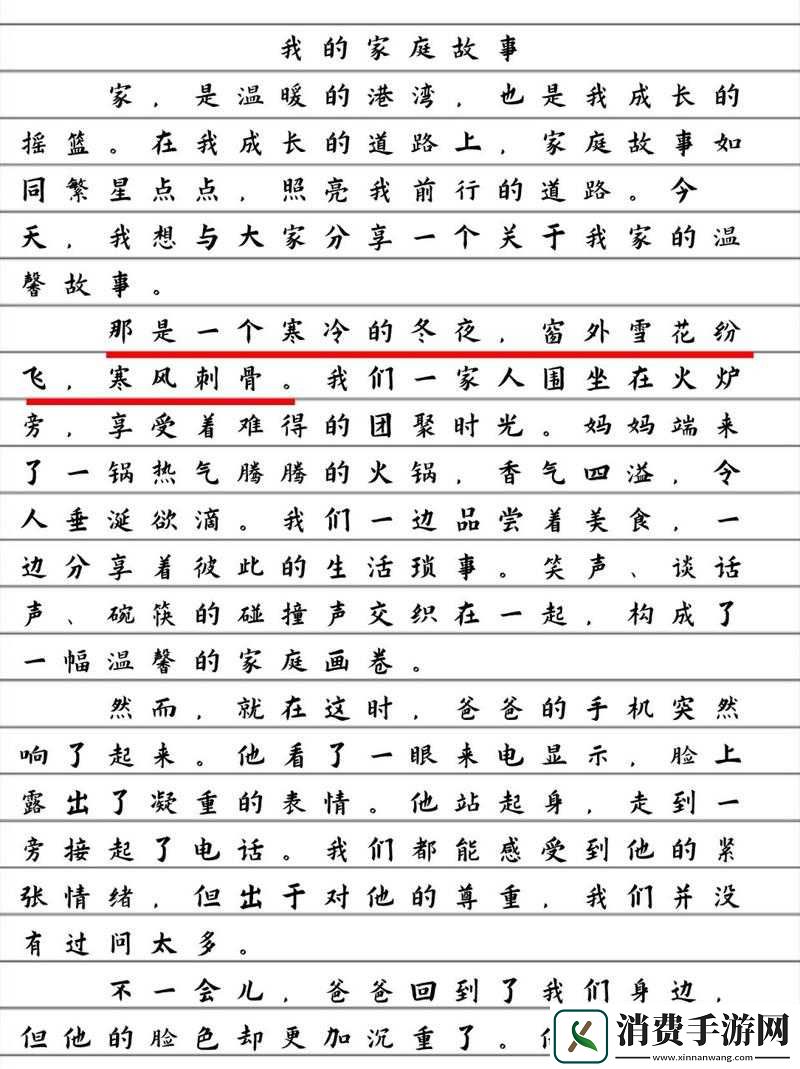 我的家庭故事
家，是温暖的港湾，也是我成长的
摇篮。在我成长的道路上，家庭故事如
同繁星点点，照亮我前行的道路。今
天，我想与大家分享一个关于我家的温
馨故事。
那是一个寒冷的冬夜，窗外雪花纷
飞，寒风刺骨。我们一家人围坐在火炉
旁，享受着难得的团聚时光。妈妈端来
了一锅热气腾腾的火锅，香气四溢，令
人垂涎欲滴。我们一边品尝着美食，一
边分享着彼此的生活琐事。笑声、谈话
声、碗筷的碰撞声交织在一起，构成了
一幅温馨的家庭画卷。
然而，就在这时，爸爸的手机突然
响了起来。他看了一眼来电显示，脸上
露出了凝重的表情。他站起身，走到一
旁接起了电话。我们都能感受到他的紧
张情绪，但出于对他的尊重，我们并没
有过问太多。
不一会儿，爸爸回到了我们身边，
但他的脸色却更加沉重了。
消费手游网
www.xinnanwang.com